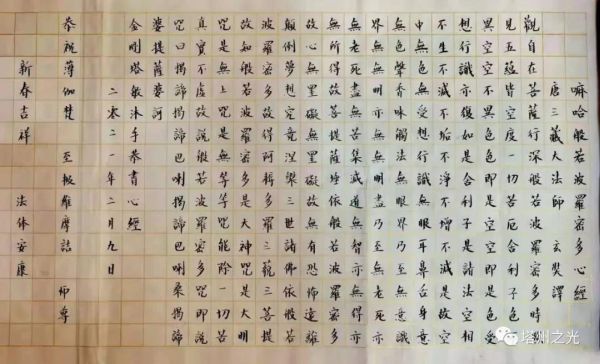 嘛哈般若波羅密多心經
唐三藏大法師玄奘譯
觀自在菩薩行深般若波羅密多時照
見五蘊皆空度一切苦厄舍利子色不
異空空不異色色即是空空即是色受
想行識亦復如是舍利子是諸法空相
不生不滅不垢不淨不增不減是故空
中無色無受想行識無眼耳鼻舌身意
無色聲香味觸法無眼界乃至無意識
界無無明亦無無明盡乃至無老死亦
無老死盡無苦集滅道無智亦無得以
無所得故菩提薩埵依般若波羅密多
故心無罣礙無罣礙故無有恐怖遠離
顛倒夢想究竟涅槃三世諸佛依般若
波羅密多故得阿耨多羅三藐三菩提
故知般若波羅密多是大神咒是大明
咒是無上咒是無等等咒能除一切苦
真實不虛故說般若波羅密多咒即說
咒曰揭諦揭諦巴喇揭諦巴喇桑揭諦
提薩訶
金剛塔沐手恭書心經
二零二一年二月九日
恭祝薄伽梵 至極維摩詰 仰尊
新春吉祥 法体安康
塔州之光